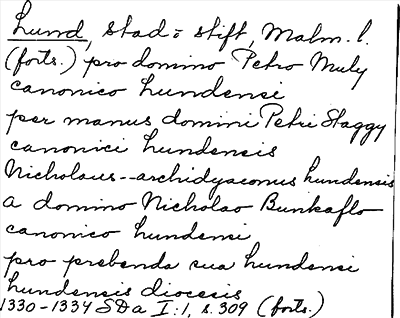 Lund, stad o stift, Malm. l.
(forts.) pro domino Petro Muly
canonico lundensi
per manus domini Petri Staggy
canonici lundensis
Nicholaus--archidyaconus lundensis
a domino Nicholao Bunkaflo
canonico lundensi
pro prebenda sua lundensi
lundensis diocesis
1330-1334 SDa I:1, s. 309 (forts.)